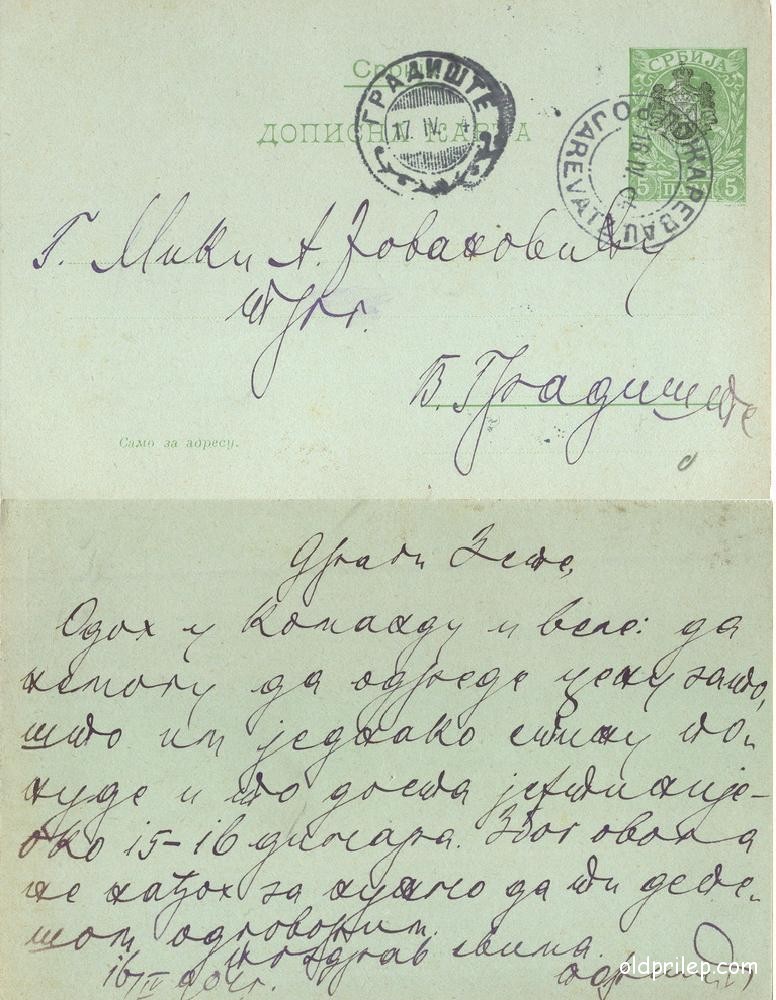 СРБИЈА
ДОПИСНА КАРТА
5 ПАРА 5
ГРАДИШТЕ
17. IV. 4
ПОЖАРЕВАЦ
POJAREVATZ
Г. Мики А. Јовановићу
трг.
В. Градиште
Само за адресу.
Драги Зете,
Одох у команду и веле: да
немогу да одреде цену зато,
што им једнако стижу по-
нуде и то доста јефтиније-
око 15-16 динара. Због овога
не нађох за нужно да ти депе-
шом одговорим.
Поздрав свима.
16/IV 904 г.
oldprilep.com